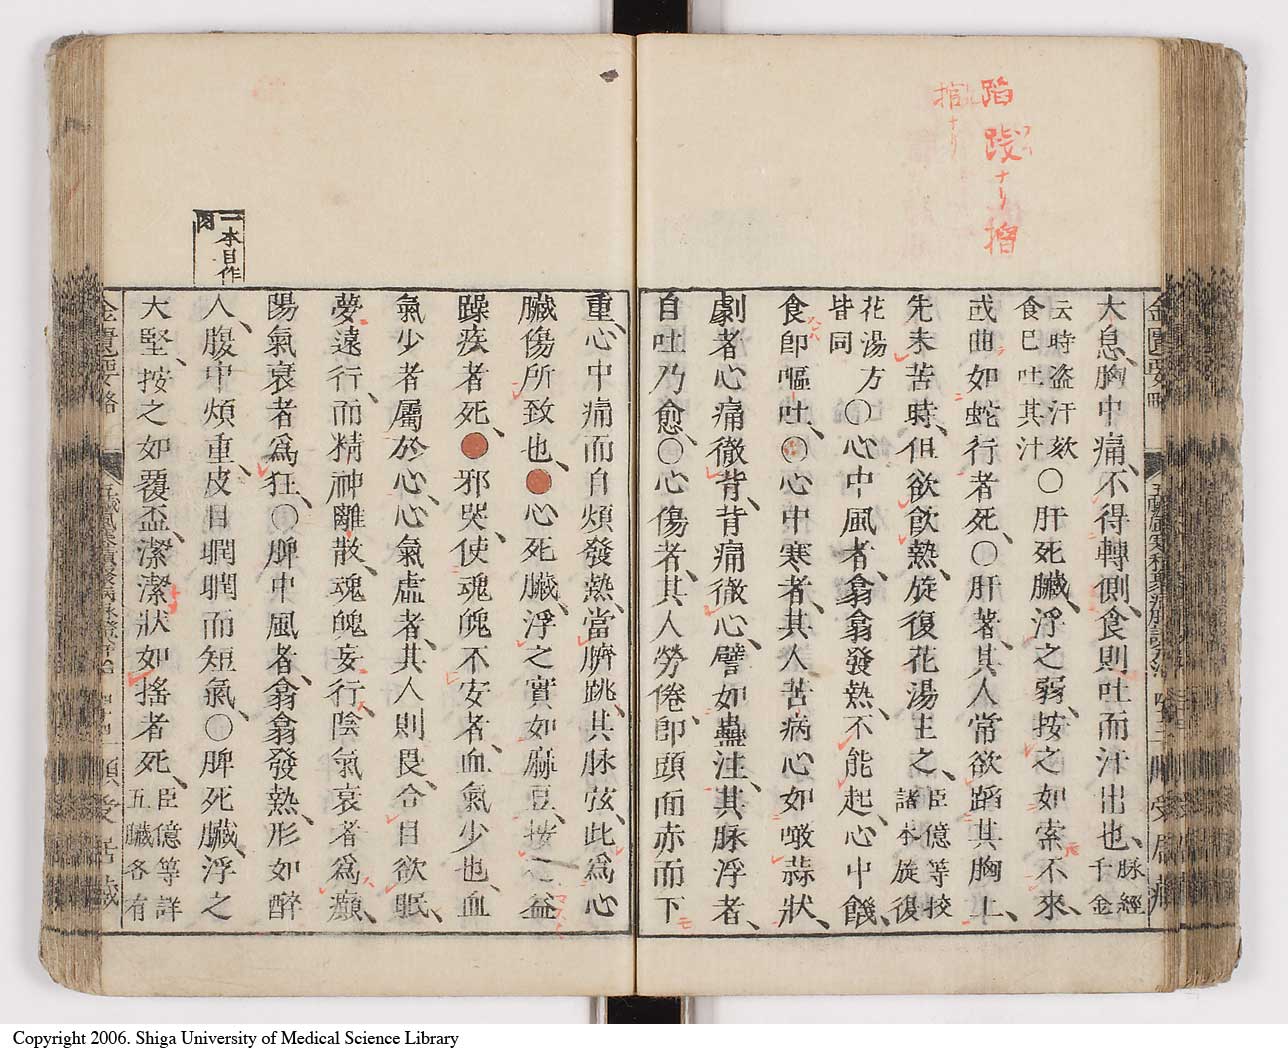 蹈
踐ナリ
搯
捾ナリ
大息、胸中痛、不得轉側、食則吐而汗出也、脉經千金
云時盗汗欬
食巳吐其汁
〇肝死臟、浮之弱、按之如索不來、
或曲如蛇行者死、〇肝著、其人常欲蹈其胸上、
先未苦時、但欲飮熱、旋復花湯主之、臣億等挍
諸本旋復
花湯方
皆同
〇心中風者、翕翕發熱、不能起、心中饑、
食卽嘔吐、〇心中寒者、其人苦病心如噉蒜狀、
劇者心痛徹背、背痛徹心、譬如蠱注、其脉浮者、
自吐乃愈、〇心傷者、其人勞倦、卽頭面赤而下
重、心中痛而自煩發熱、當臍跳、其脉弦、此爲心
臟傷所致也、●心死臟、浮之實如麻豆、按之益
躁疾者死、●邪哭、使魂魄不安者、血氣少也、血
氣少者屬於心、心氣虛者、其人則畏、合目欲眠、
夢遠行、而精神離散、魂魄妄行、陰氣衰者爲癲、
陽氣衰者爲狂、〇脾中風者、翕翕發熱、形如醉
人、腹中煩重、皮目瞤瞤而短氣、〇脾死臟、浮之
大堅、按之如覆盃、潔潔狀如搖者死、臣億等詳
五臟各有
一本目作
肉
金匱要略
Copyright 2006. Shiga University of Medical Science Library